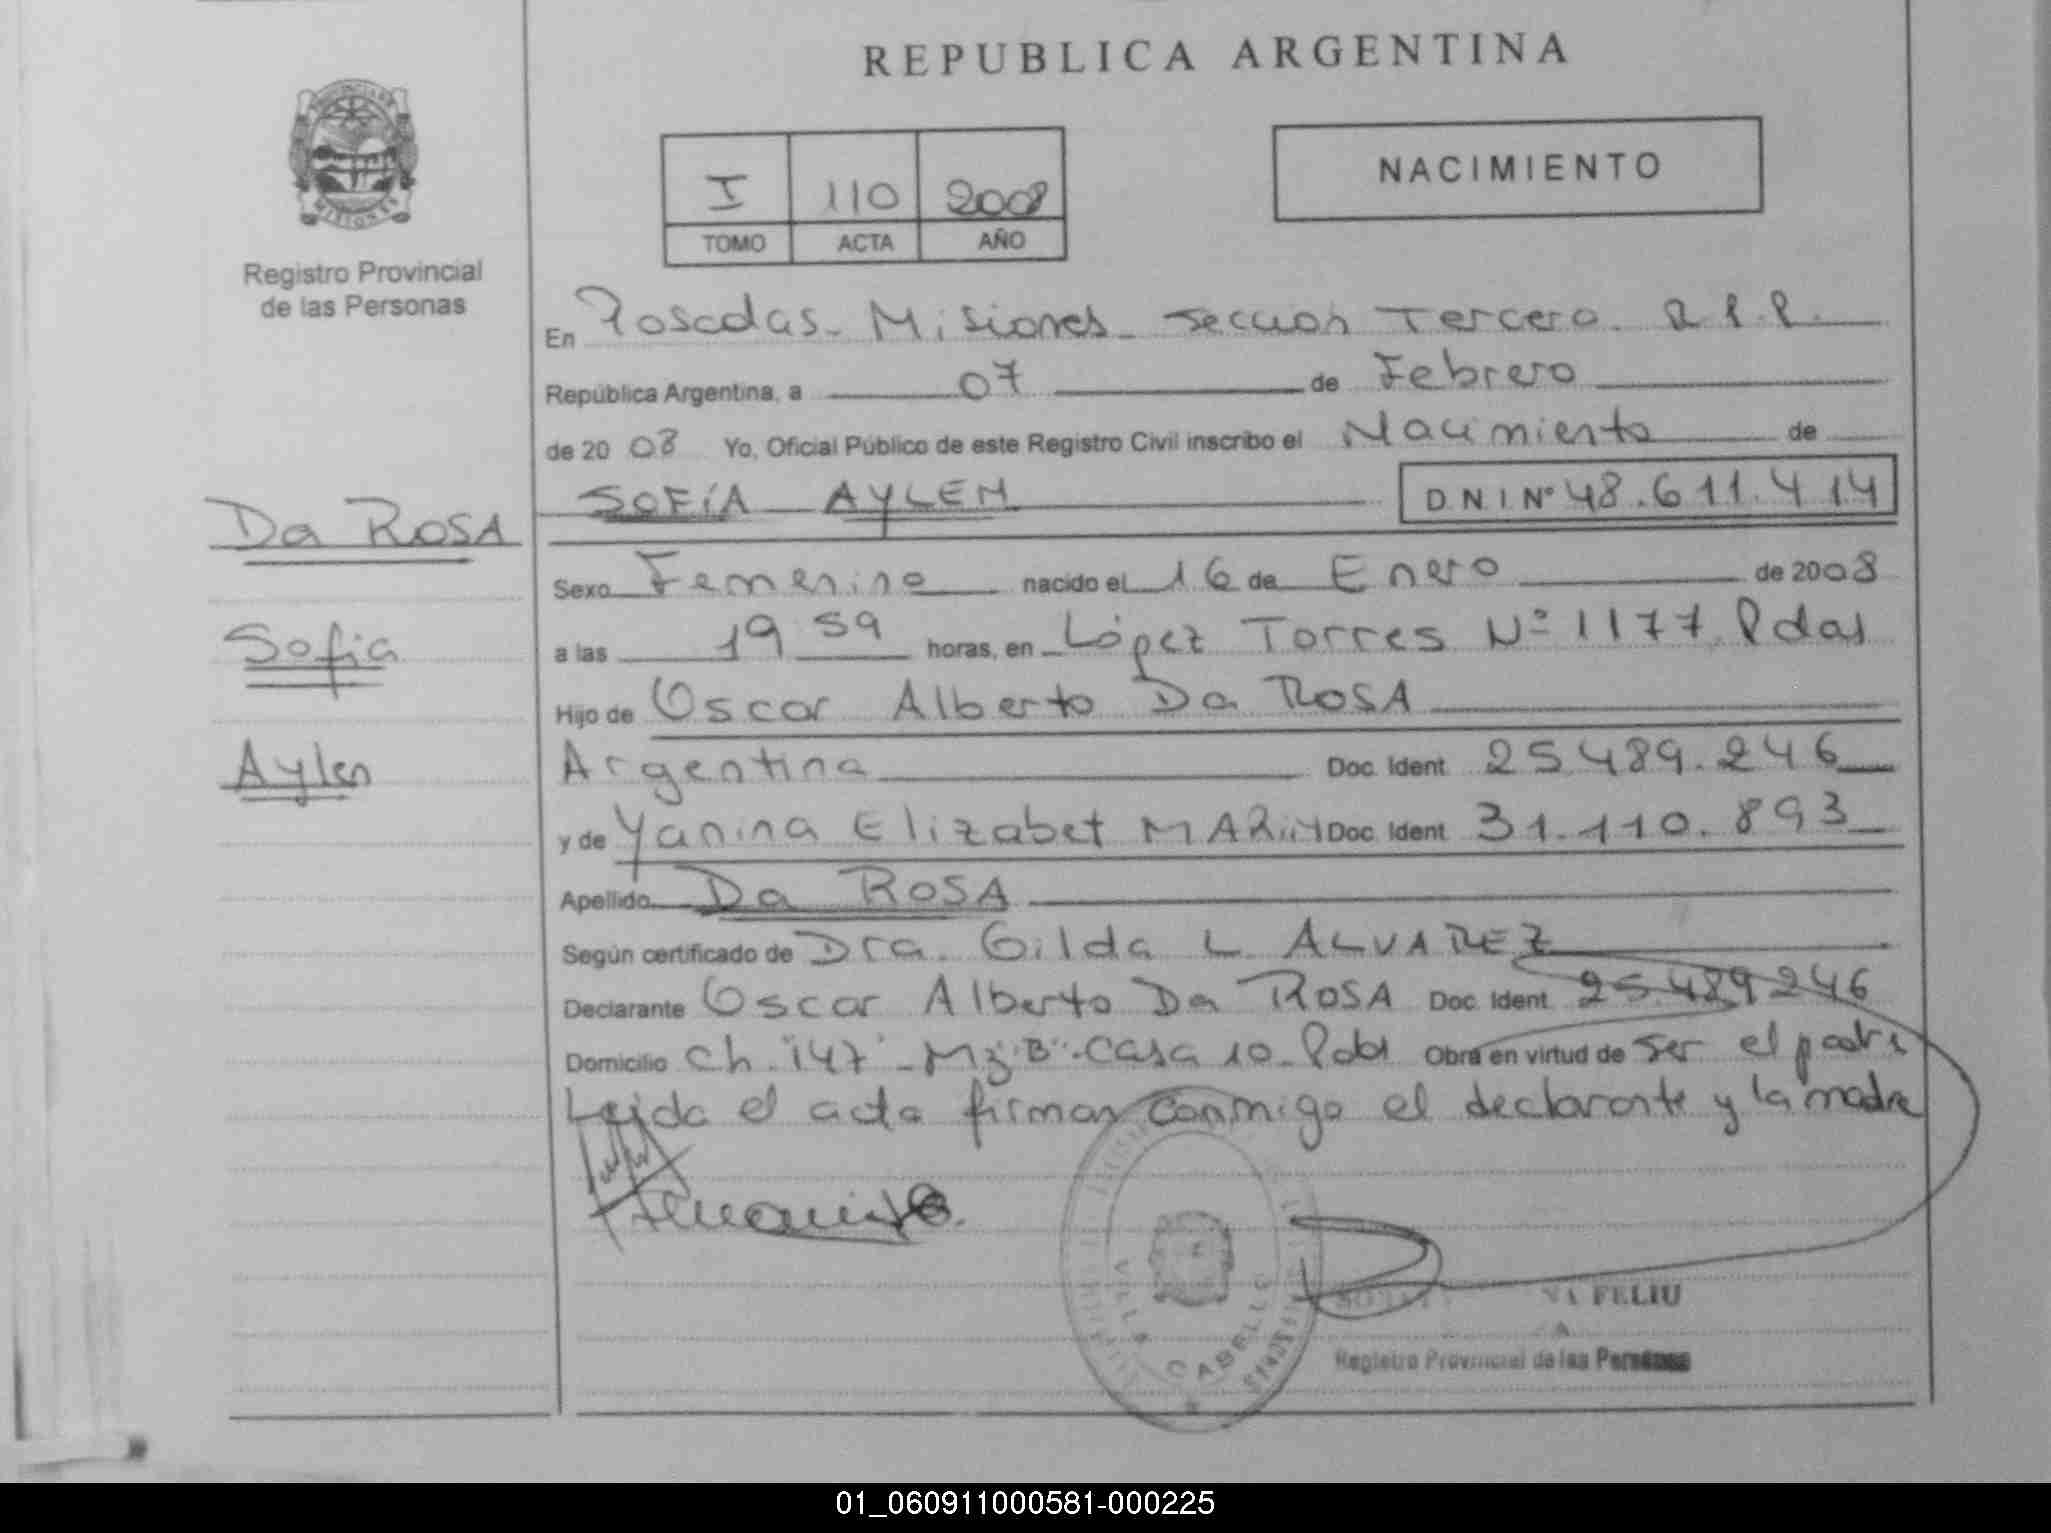 REPUBLICA ARGENTINA
PROVINCIA DE
MISIONES
Registro Provincial
de las Personas
I 110 2008
TOMO ACTA AÑO
NACIMIENTO
En Posadas - Misiones - Sección Tercera. R.P.P.
República Argentina, a 07 de Febrero
de 2008 Yo, Oficial Público de este Registro Civil inscribo el Nacimiento de
SOFÍA AYLEN D.N.I. Nº 48.611.414
Da ROSA
Sofia
Aylen
Sexo Femenino nacido el 16 de Enero de 2008
a las 19 59 horas, en López Torres Nº 1177 Pdas
Hijo de Oscar Alberto Da ROSA
Argentina Doc. Ident 25.489.246
y de Yanina Elizabet MARIN Doc. Ident 31.110.893
Apellido Da ROSA
Según certificado de Dra. Gilda L. ALVAREZ
Declarante Oscar Alberto Da ROSA Doc. Ident 25.489246
Domicilio Ch. 147 - Mz "B" - Casa 10 - Obra en virtud de ser el padre
Leida el acta firman conmigo el declarante y la madre
VILLA CABELLO
FELIU
Registro Provincial de las Personas
01_060911000581-000225